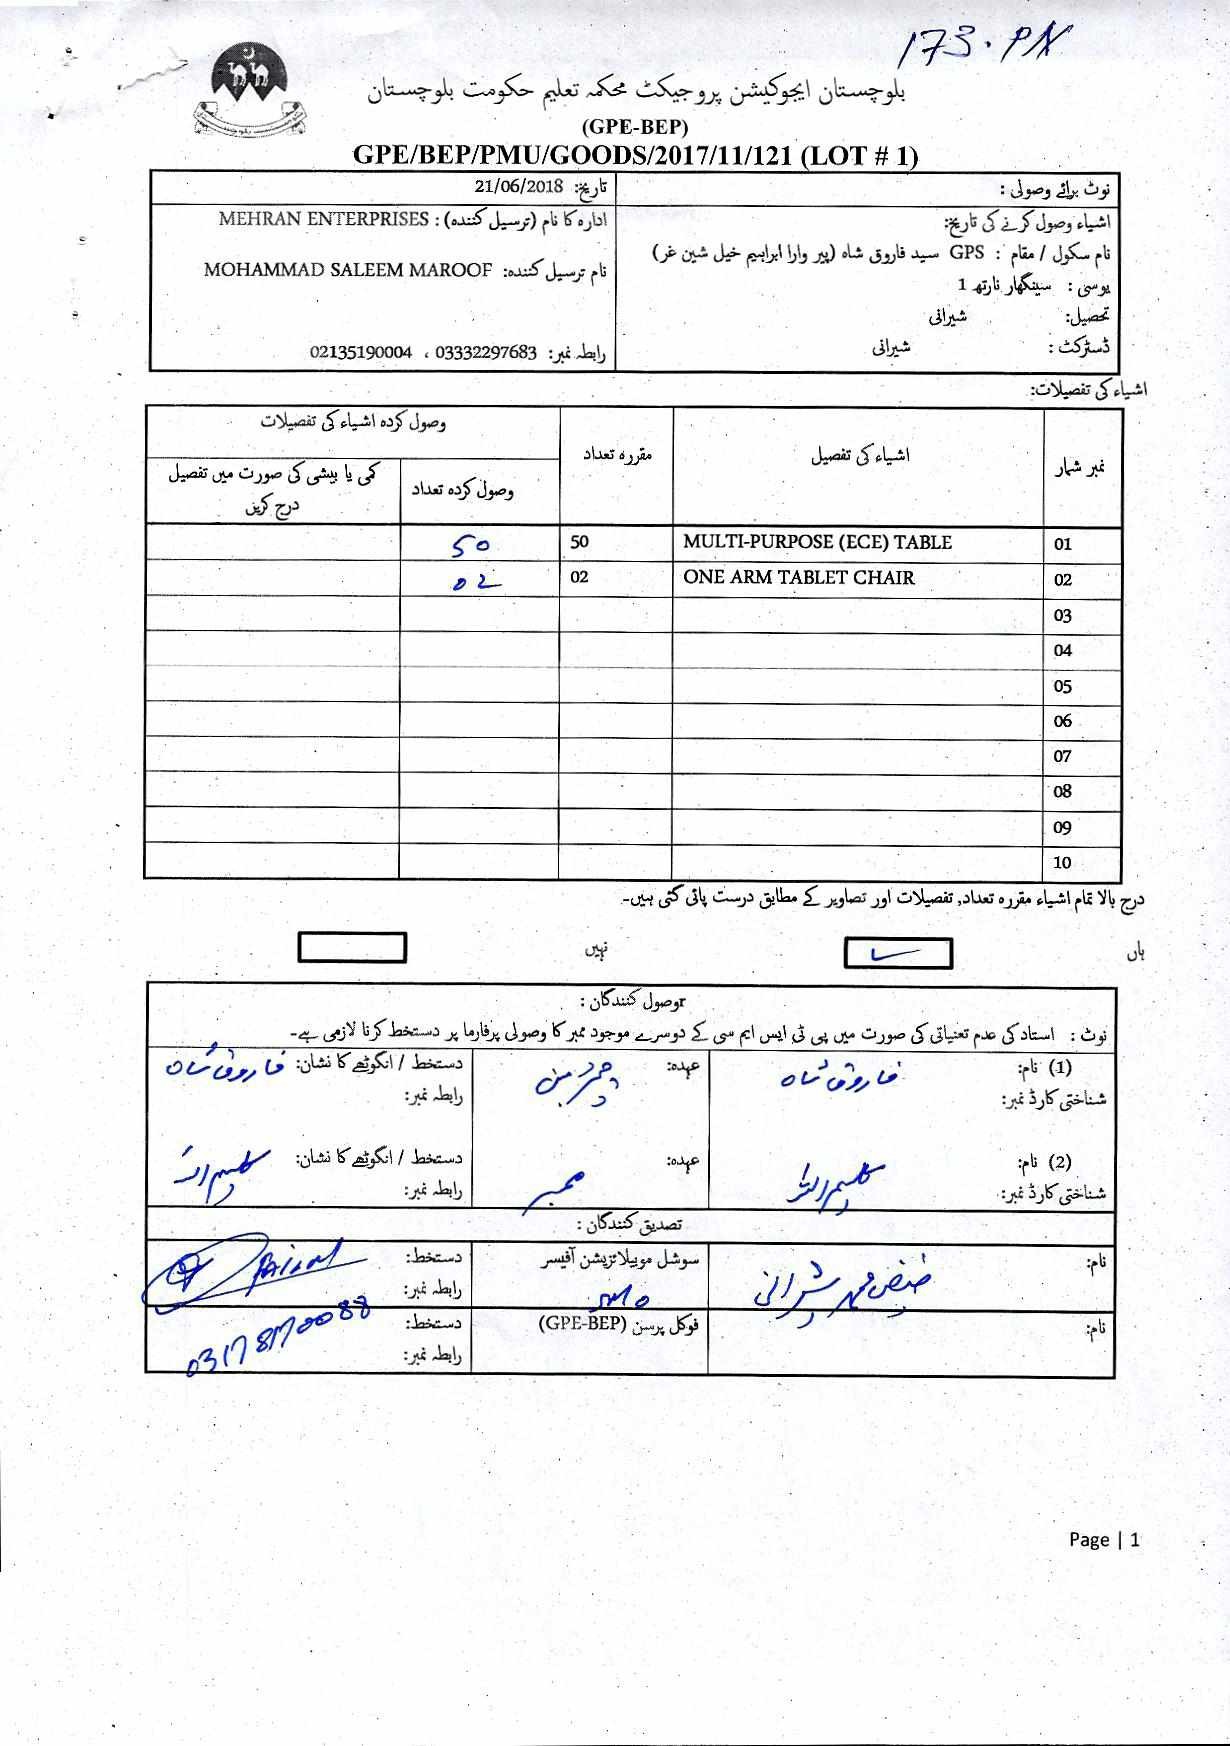 173. PN
بلوچستان ایجوکیشن پروجیکٹ محکمہ تعلیم حکومت بلوچستان
(GPE-BEP)
GPE/BEP/PMU/GOODS/2017/11/121 (LOT # 1)
نوٹ برائے وصولی :
اشیاء وصول کرنے کی تاریخ:
نام سکول / مقام : GPS سید فاروق شاہ (پیر وارا ابراہیم خیل شین غر)
یوسی : سینگھار نارتھ 1
تحصیل: شیرانی
ڈسٹرکٹ : شیرانی
تاریخ: 21/06/2018
ادارہ کا نام (ترسیل کنندہ) : MEHRAN ENTERPRISES
نام ترسیل کنندہ: MOHAMMAD SALEEM MAROOF
رابطہ نمبر: 03332297683 ، 02135190004
اشیاء کی تفصیلات:
نمبر شمار اشیاء کی تفصیل مقررہ تعداد وصول کردہ اشیاء کی تفصیلات
وصول کردہ تعداد کمی یا بیشی کی صورت میں تفصیل درج کریں
01 MULTI-PURPOSE (ECE) TABLE 50 50
02 ONE ARM TABLET CHAIR 02 02
03
04
05
06
07
08
09
10
درج بالا تمام اشیاء مقررہ تعداد, تفصیلات اور تصاویر کے مطابق درست پائی گئی ہیں۔
ہاں نہیں
وصول کنندگان :
نوٹ : استاد کی عدم تعنیاتی کی صورت میں پی ٹی ایس ایم سی کے دوسرے موجود ممبر کا وصولی پرفارما پر دستخط کرنا لازمی ہے۔
(1) نام: فاروق شاہ عہدہ: چیرمین دستخط / انگوٹھے کا نشان: فاروق شاہ
شناختی کارڈ نمبر: رابطہ نمبر:
(2) نام: کلیم اللہ عہدہ: ممبر دستخط / انگوٹھے کا نشان: کلیم اللہ
شناختی کارڈ نمبر: رابطہ نمبر:
تصدیق کنندگان :
نام: محمد شیرانی سوشل موبیلائزیشن آفیسر دستخط:
SMO رابطہ نمبر:
نام: فوکل پرسن (GPE-BEP) دستخط:
رابطہ نمبر: 03178170088
Page | 1